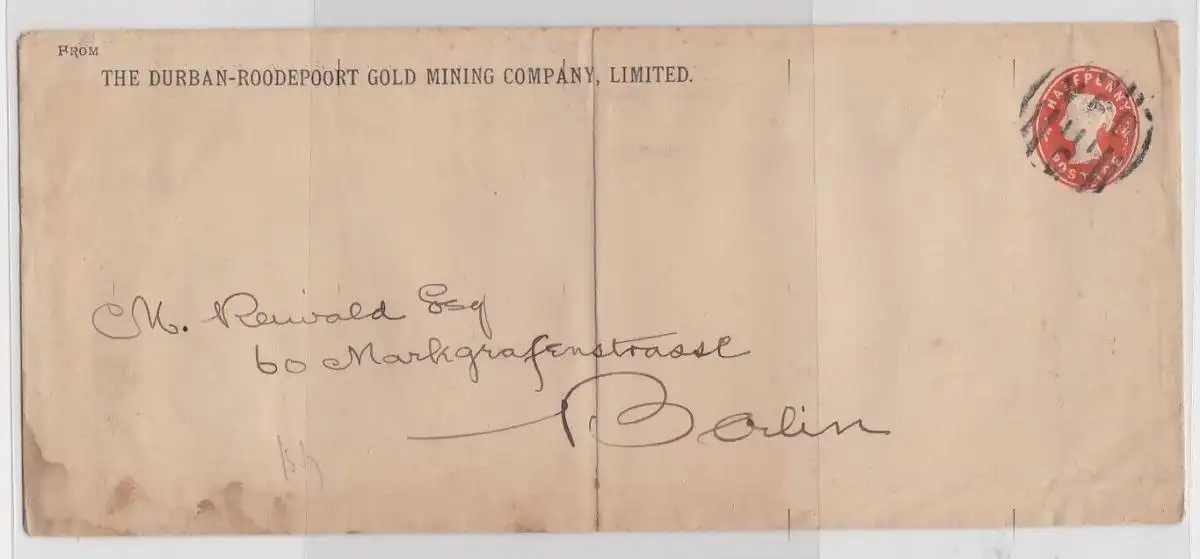 FROM
THE DURBAN-ROODEPOORT GOLD MINING COMPANY, LIMITED.
HALFPENNY
POSTAGE
M. Reiwald Esq
60 Markgrafenstrasse
Berlin